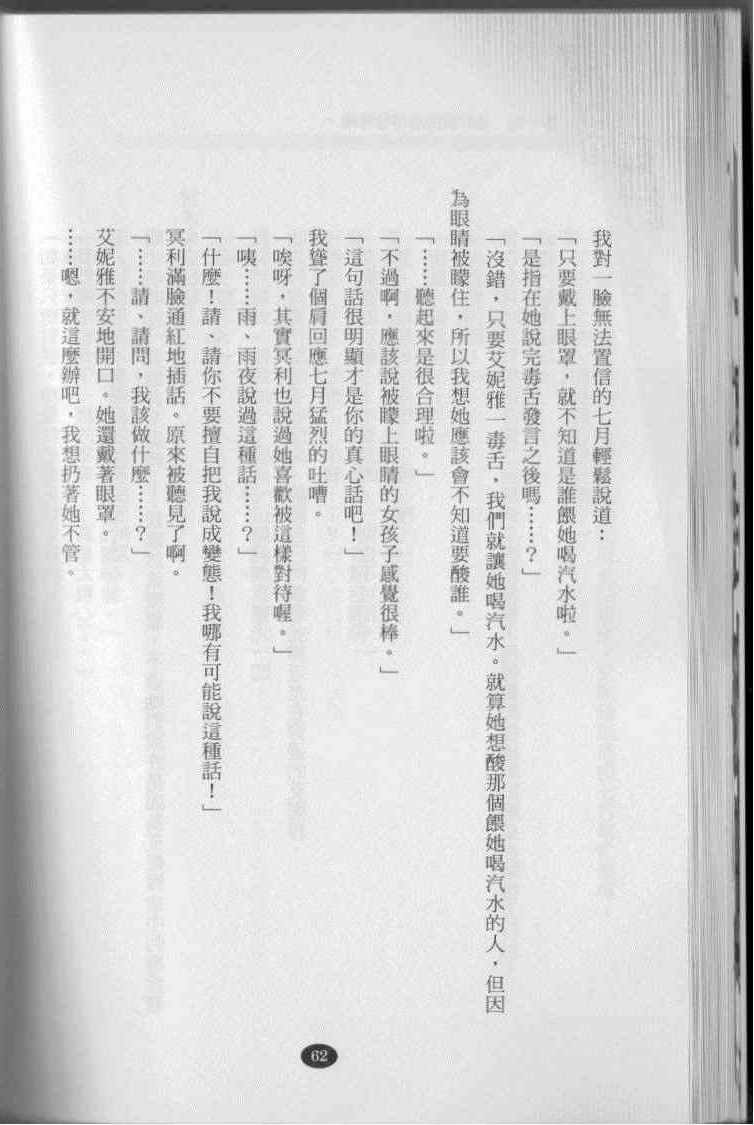 我對一臉無法置信的七月輕鬆說道：
「只要戴上眼罩，就不知道是誰餵她喝汽水啦。」
「是指在她說完毒舌發言之後嗎……？」
「沒錯，只要艾妮雅一毒舌，我們就讓她喝汽水。就算她想酸那個餵她喝汽水的人，但因
為眼睛被矇住，所以我想她應該會不知道要酸誰。」
「……聽起來是很合理啦。」
「不過啊，應該說被矇上眼睛的女孩子感覺很棒。」
「這句話很明顯才是你的真心話吧！」
我聳了個肩回應七月猛烈的吐嘈。
「唉呀，其實冥利也說過她喜歡被這樣對待喔。」
「咦……雨、雨夜說過這種話……？」
「什麼！請、請你不要擅自把我說成變態！我哪有可能說這種話！」
冥利滿臉通紅地插話。原來被聽見了啊。
「……請、請問，我該做什麼……？」
艾妮雅不安地開口。她還戴著眼罩。
……嗯，就這麼辦吧，我想扔著她不管。
62